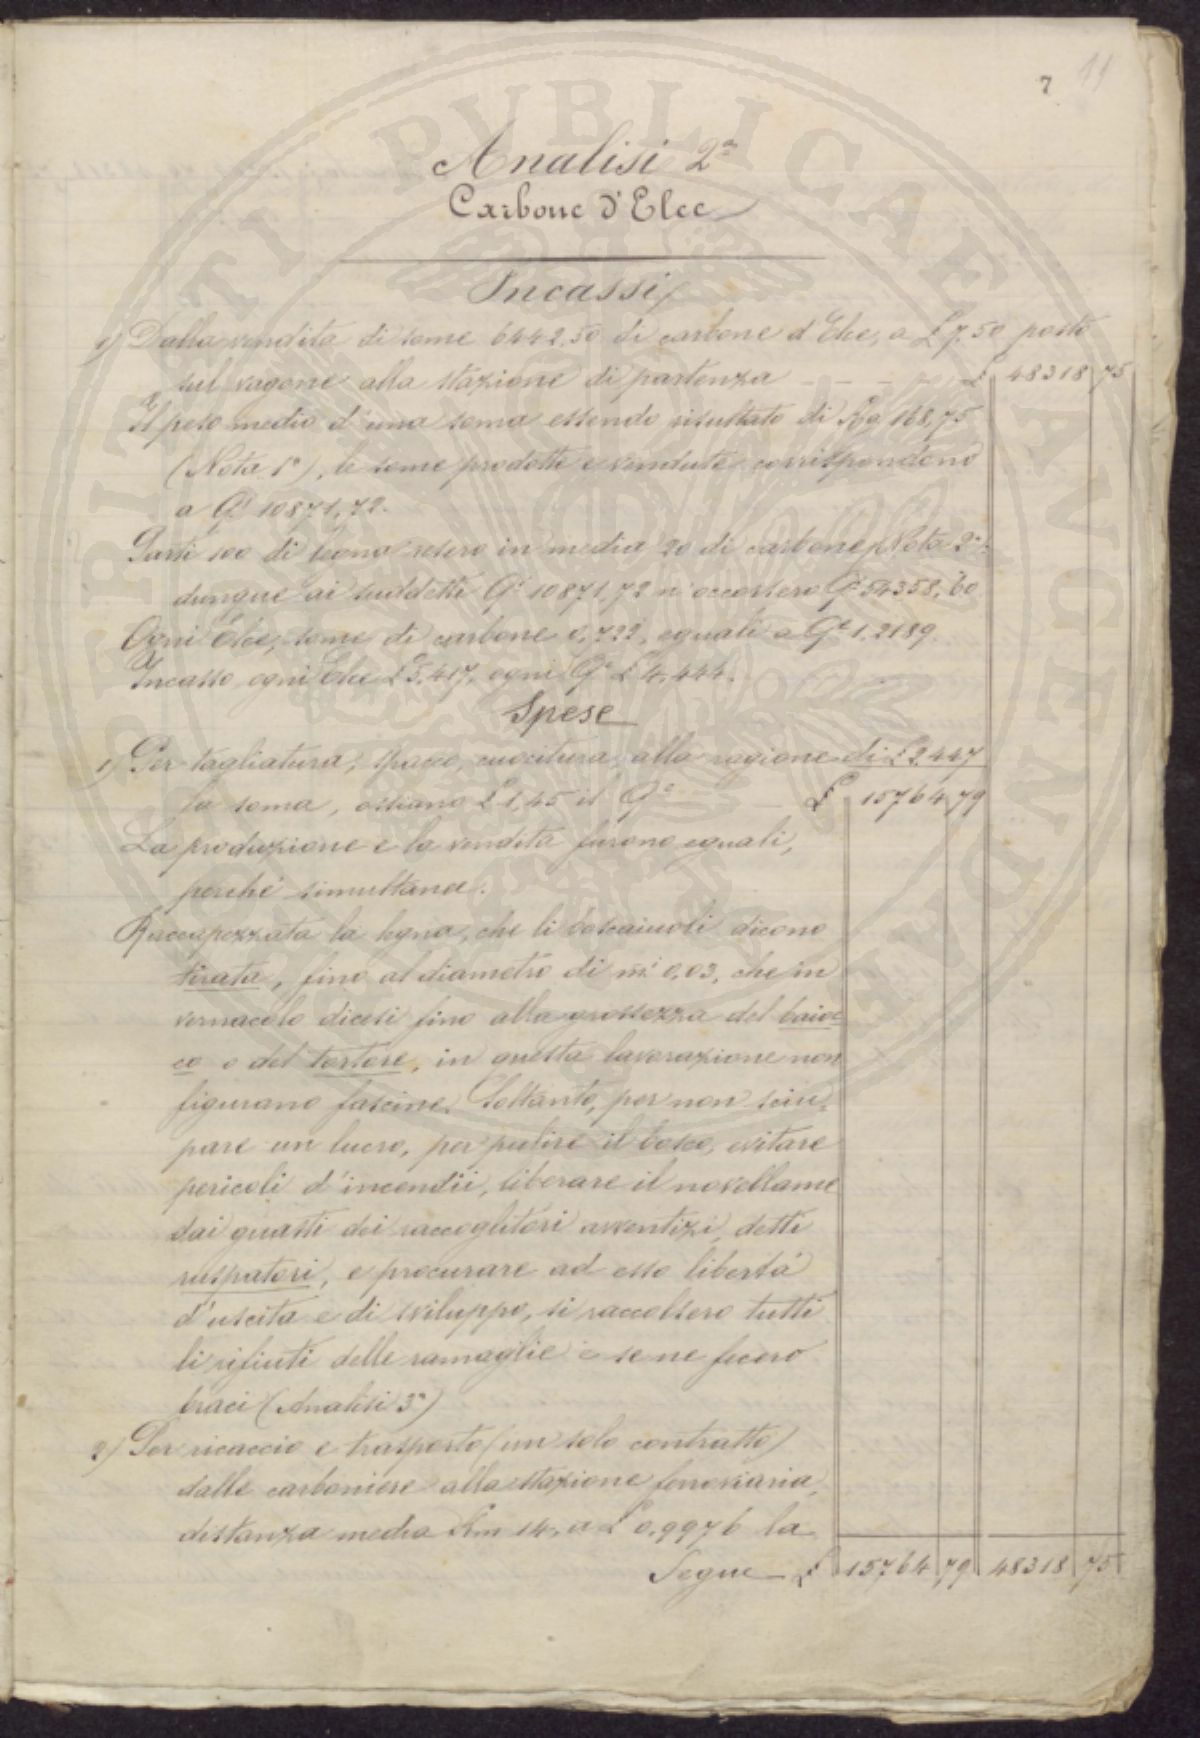 7 11
Analisi 2ª
Carbone d'Elce
Incassi
1) Dalla vendita di some 6442,50 di carbone d'Elce, a £ 7,50 posto
sul vagone alla stazione di partenza - - - £ 48318 75
Il peso medio d'una soma essendo risultato di Kg 168,75
(Nota 1ª), le some prodotte e vendute corrispondono
a Qˡⁱ 10871,72.
Parti 100 di legna resero in media 20 di carbone, Nota 2ª:
dunque ai suddetti Qˡⁱ 10871,72 n'occorsero Qˡⁱ 54358,60
Ogni Elce, some di carbone 0,722, eguali a Qˡⁱ 1,2189
Incasso ogni Elce £ 5,417, ogni Qˡᵉ £ 4,444.
Spese
1) Per tagliatura, spacco, cuocitura, alla ragione di £ 2447
la soma, ossiano £ 1,45 il Qˡᵉ £ 15764 79
La produzione e la vendita furono eguali,
perchè simultanee.
Raccapezzata la legna, che li boscaiuoli dicono
tirata, fino al diametro di mⁱ 0,03, che in
vernacolo dicesi fino alla grossezza del baioc=
co o del tortore, in questa lavorazione non
figurano fascine. Soltanto, per non sciu=
pare un lucro, per pulire il bosco, evitare
pericoli d'incendii, liberare il novellame
dai guasti dei raccoglitori avventizi, detti
ruspatori, e procurare ad esso libertà
d'uscita e di sviluppo, si raccolsero tutti
li rifiuti delle ramaglie e se ne fecero
braci (Analisi 3ª)
2) Per ricaccio e trasporto (un solo contratto)
dalle carboniere alla stazione ferroviaria,
distanza media Km 14, a £ 0,9976 la
Segue £ 15764 79 48318 75